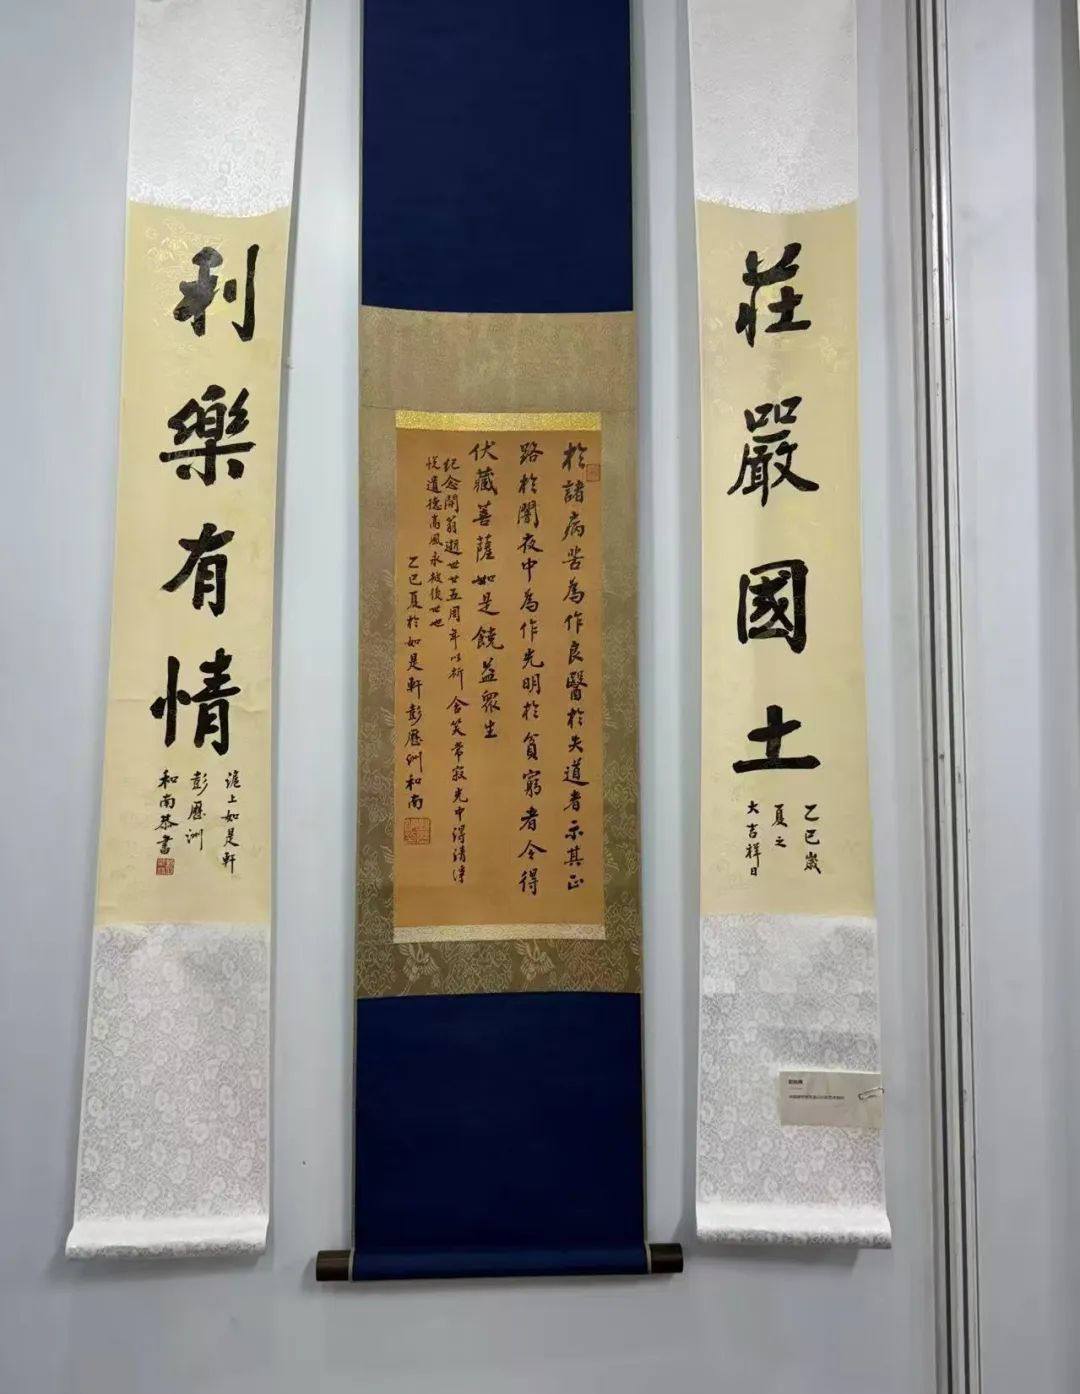 莊嚴國土
乙巳歲
夏之
大吉祥日
於諸病苦為作良醫於失道者示其正
路於闇夜中為作光明於貧窮者令得
伏藏菩薩如是饒益眾生
紀念開翁逝世廿五周年以祈 含笑常寂光中得清淨
悅遺德高風永被後世也
乙巳夏於如是軒彭歷洲和南
利樂有情
滬上如是軒
彭歷洲
和南恭書